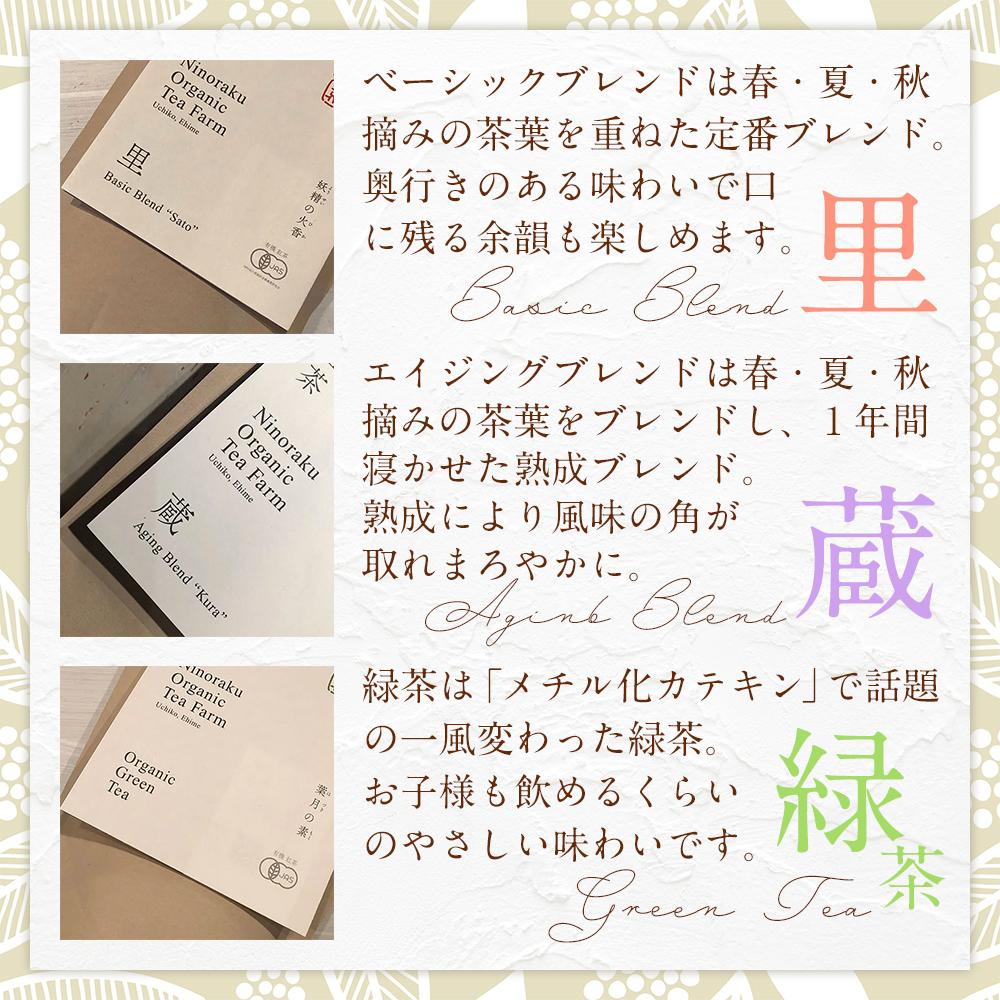 Ninoraku
Organic
Tea Farm
Uchiko, Ehime
里
Basic Blend “Sato”
妖精の火香
有機 紅茶
JAS
ベーシックブレンドは春・夏・秋
摘みの茶葉を重ねた定番ブレンド。
奥行きのある味わいで口
に残る余韻も楽しめます。
里
Basic Blend
茶
Ninoraku
Organic
Tea Farm
Uchiko, Ehime
蔵
Aging Blend “Kura”
エイジングブレンドは春・夏・秋
摘みの茶葉をブレンドし、１年間
寝かせた熟成ブレンド。
熟成により風味の角が
取れまろやかに。
蔵
Aginb Blend
Ninoraku
Organic
Tea Farm
Uchiko, Ehime
Organic
Green
Tea
葉月の素
有機 紅茶
JAS
緑茶は「メチル化カテキン」で話題
の一風変わった緑茶。
お子様も飲めるくらい
のやさしい味わいです。
緑茶
Green Tea